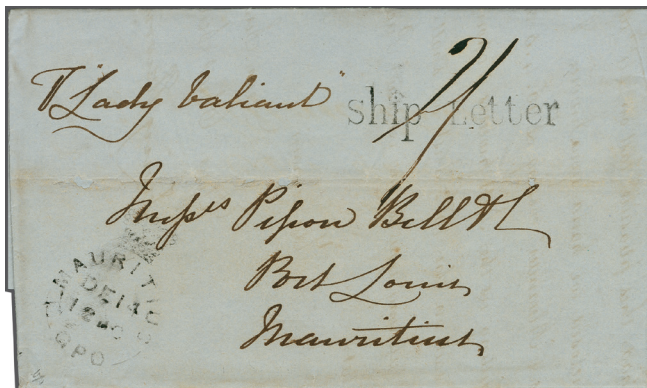 P "Lady Valiant"
Ship Letter
Messrs Pipon Bell & Co
Port Louis
Mauritius
MAURITIUS
DE 14
GPO